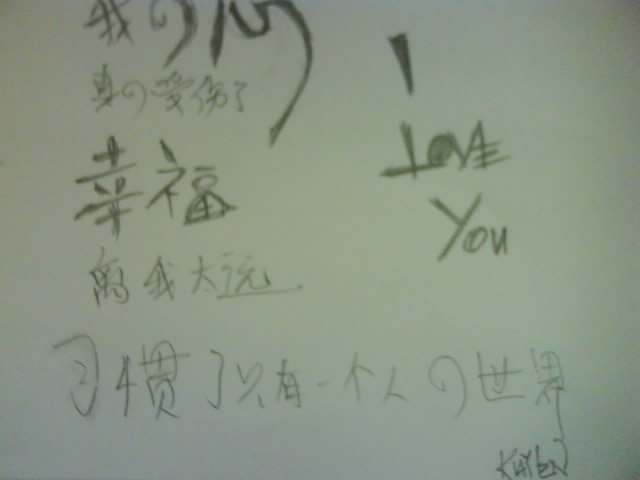 我の心
真の受伤了
幸福
离我太远
习惯了只有一个人の世界
I
LOVE
YOU
KAYLEN